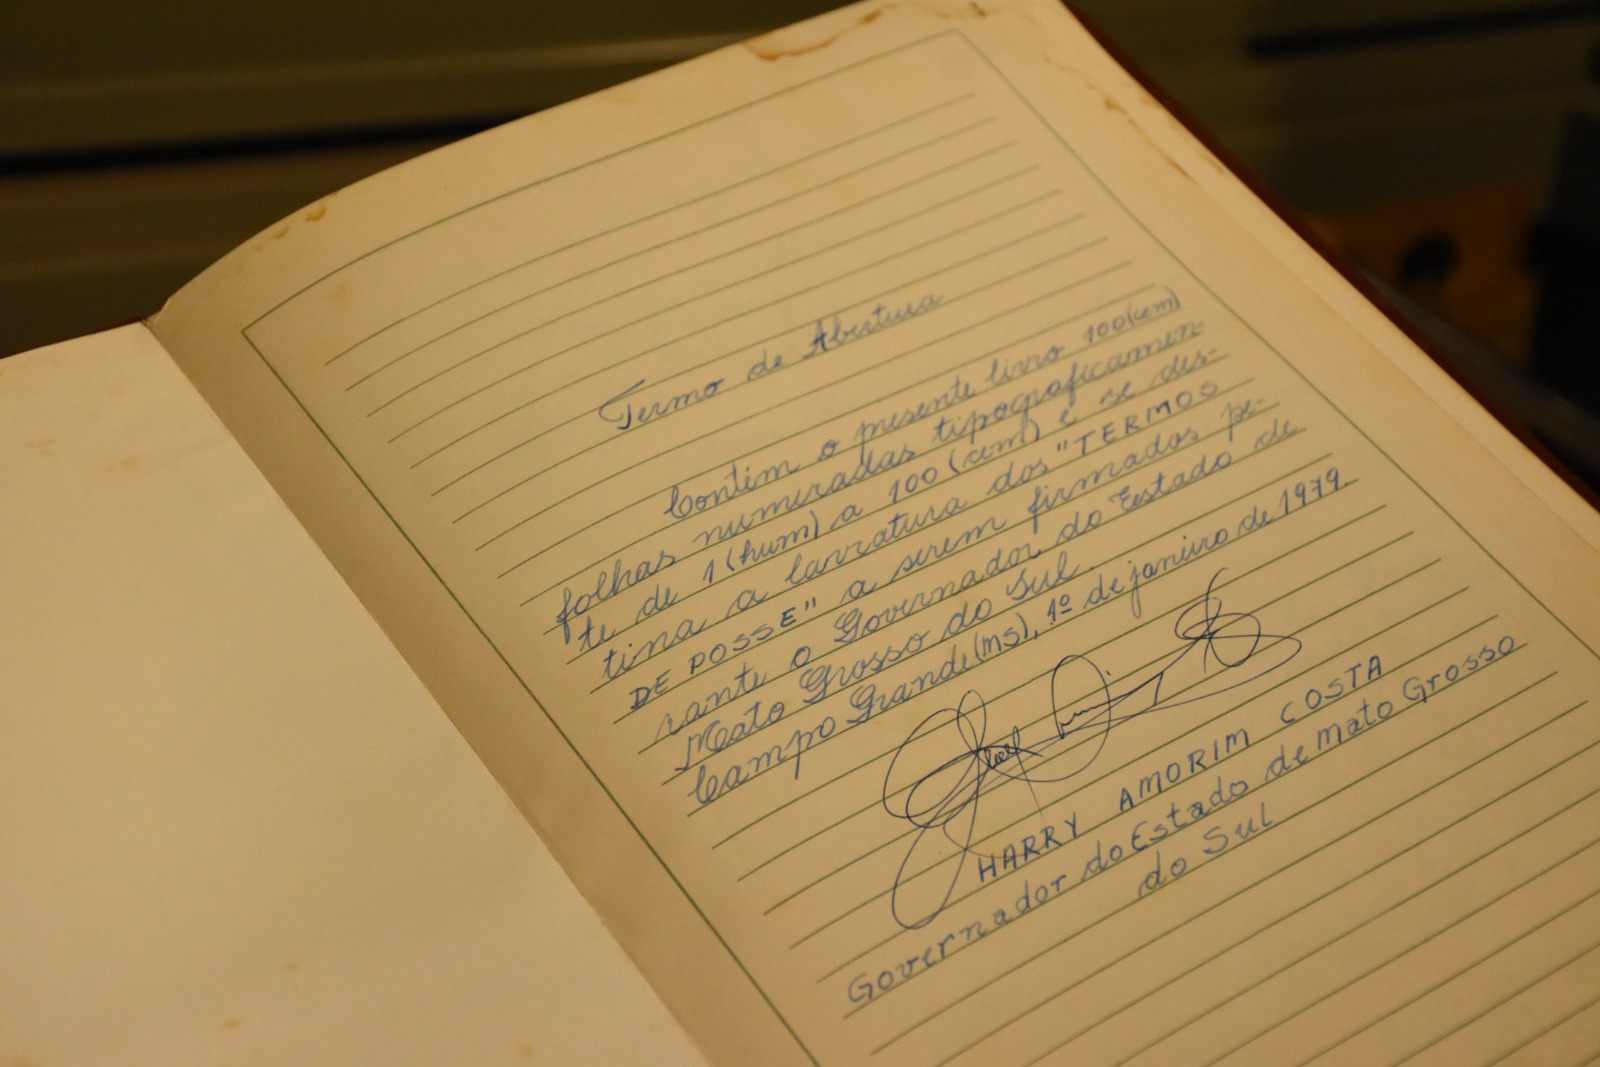 Termo de Abertura
Contém o presente livro 100 (cem)
folhas numeradas tipograficamen-
te de 1 (hum) a 100 (cem) e se des-
tina a lavratura dos "TERMOS
DE POSSE" a serem firmados pe-
rante o Governador do Estado de
Mato Grosso do Sul.
Campo Grande (MS), 1º de janeiro de 1979.
HARRY AMORIM COSTA
Governador do Estado de Mato Grosso
do Sul